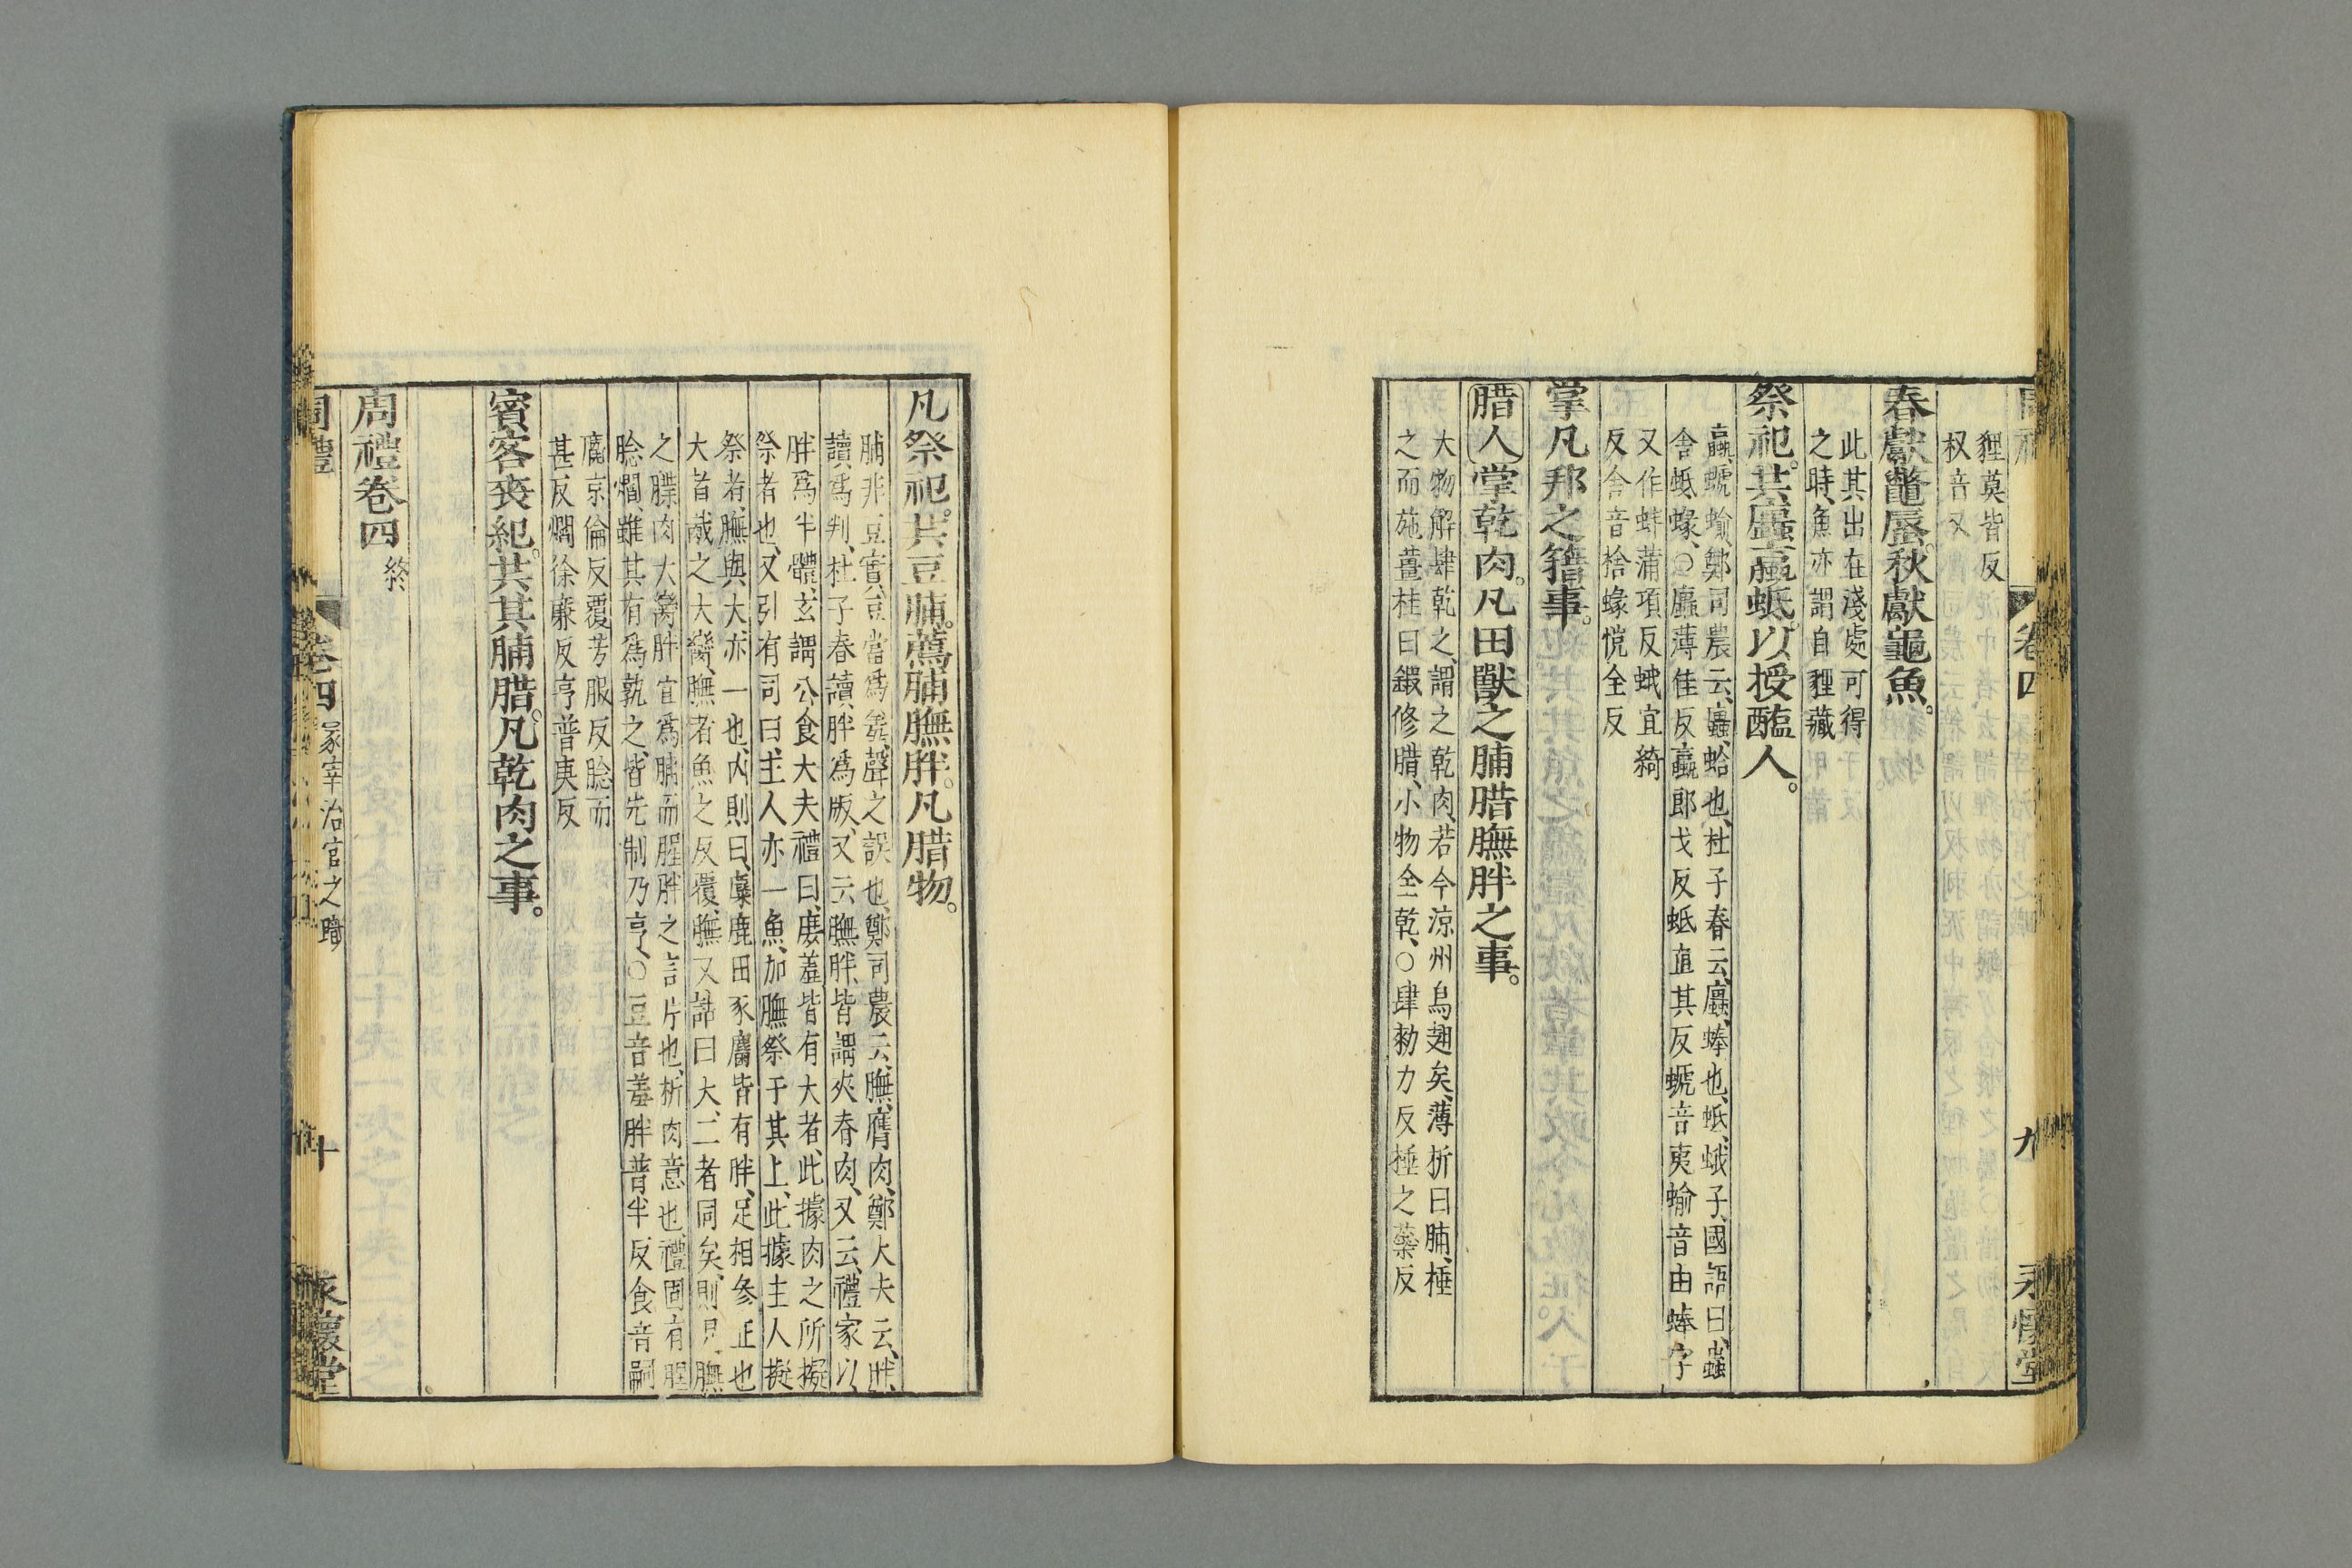 周禮 卷四 九 永懷堂
貍莫皆反
杈音叉
春獻鼈蜃。秋獻龜魚。
此其出在淺處可得
之時、魚亦謂自貍藏
祭祀。共蠯蠃蚳。以授醢人。
蠃、蜬蝓、鄭司農云、蠯、蛤也、杜子春云、蠯、蜯也、蚳、蛾子、國語曰、蟲
舍蚳蝝、○蠯薄佳反蠃郎戈反蚳直其反螔音夷蝓音由蜯字
又作蚌蒲項反蛾宜綺
反舍音捨蝝悅全反
掌凡邦之簎事。
腊人掌乾肉。凡田獸之脯腊膴胖之事。
大物解肆乾之、謂之乾肉、若今涼州烏翅矣、薄折曰脯、棰
之而施薑桂曰鍛脩腊、小物全乾、○肆勑力反捶之蘂反
凡祭祀。共豆脯。薦脯膴胖。凡腊物。
脯非豆實、豆當爲羞、聲之誤也、鄭司農云、膴、膺肉、鄭大夫云、胖、
讀爲判、杜子春讀胖爲版、又云膴胖、皆謂夾脊肉、又云、禮家以
胖爲半體、玄謂公食大夫禮曰、庶羞皆有大者、此據肉之所擬
祭者也、又引有司曰、主人亦一魚、加膴祭于其上、此據主人擬
祭者、膴與大、亦一也、內則曰、麋鹿田豕麕皆有胖、足相參正也
大者胾之大臠、膴者魚之反覆、膴又詁曰大、二者同矣、則是膴
之牒肉大臠胖宜爲脯而腥、胖之言片也、析肉意也、禮固有腥
腍爓、雖其有爲孰之、皆先制乃亨、○豆音羞胖普半反食音嗣
麕京倫反覆芳服反腍而
甚反爓徐廉反亨普庚反
賓客喪紀。共其脯腊。凡乾肉之事。
周禮卷四 終
周禮 卷四 冢宰治官之職 十 永懷堂